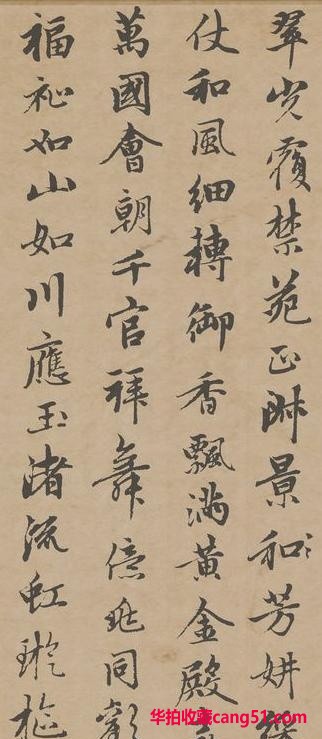 翠光覆禁苑正淑景和芳妍
仗和風細轉御香飄滿黃金殿
萬國會朝千官拜舞億兆同歡
福祉如山如川應玉渚流虹璇樞
华拍收藏cang51.com